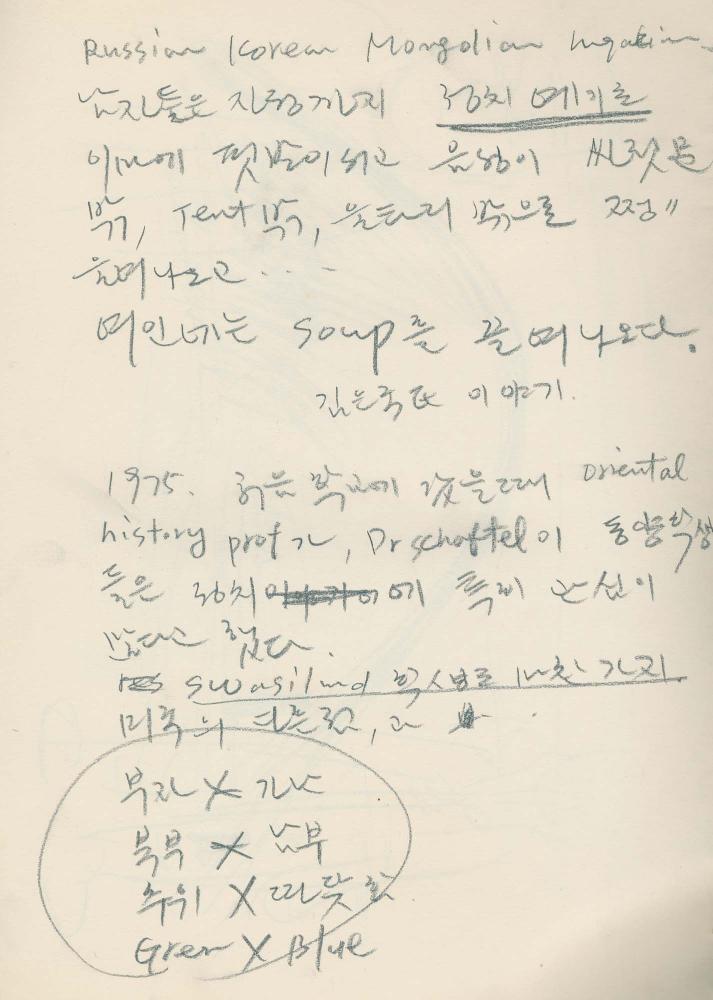 Russian Korean Mongolian
남자들은 지금까지 정치 얘기로
이마에 핏발이 서고 음성이
밖, Tent 밖, 울타리 밖으로 쩡〃
울려나오고...
여인네는 Soup를 끓여 나오다.
김은국氏 이야기.
1975. 처음 학교에 갔을 때 oriental
history prof가, Dr schaftel이 동양학생
들은 정치에 특히 관심이
많다고 했다.
swasiland 학생도 마찬가지.
미국의 다른점, 과
부자 X 가난
북부 X 남부
추위 X 따뜻함
Green X Blue